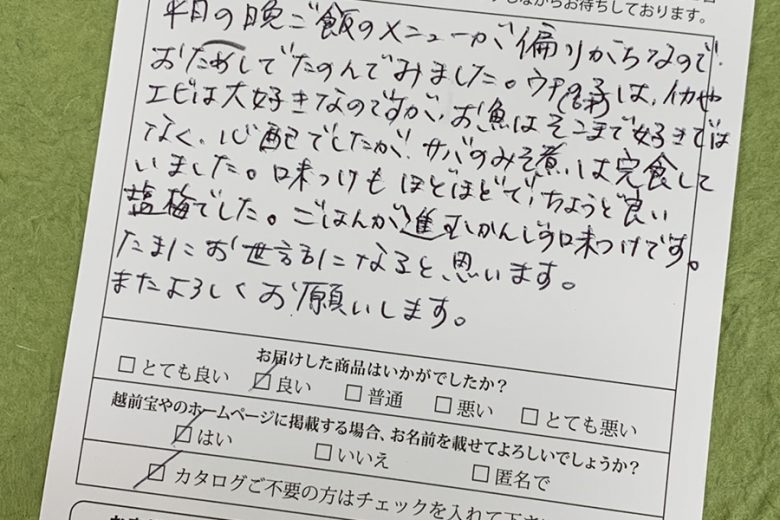 しながらお待ちしております。
平日の晩ご飯のメニューが偏りがちなので、
おためしでたのんでみました。ウチの子は、イカや
エビは大好きなのですが、お魚はそこまで好きでは
なく、心配でしたが、サバのみそ煮は完食して
いました。味つけもほどほどで、ちょうど良い
塩梅でした。ごはんが進むかんじの味つけです。
たまにお世話になると思います。
またよろしくお願いします。
お届けした商品はいかがでしたか？
□とても良い ☑良い □普通 □悪い □とても悪い
越前宝やのホームページに掲載する場合、お名前を載せてよろしいでしょうか？
☑はい □いいえ □匿名で
☑カタログご不要の方はチェックを入れて下さい